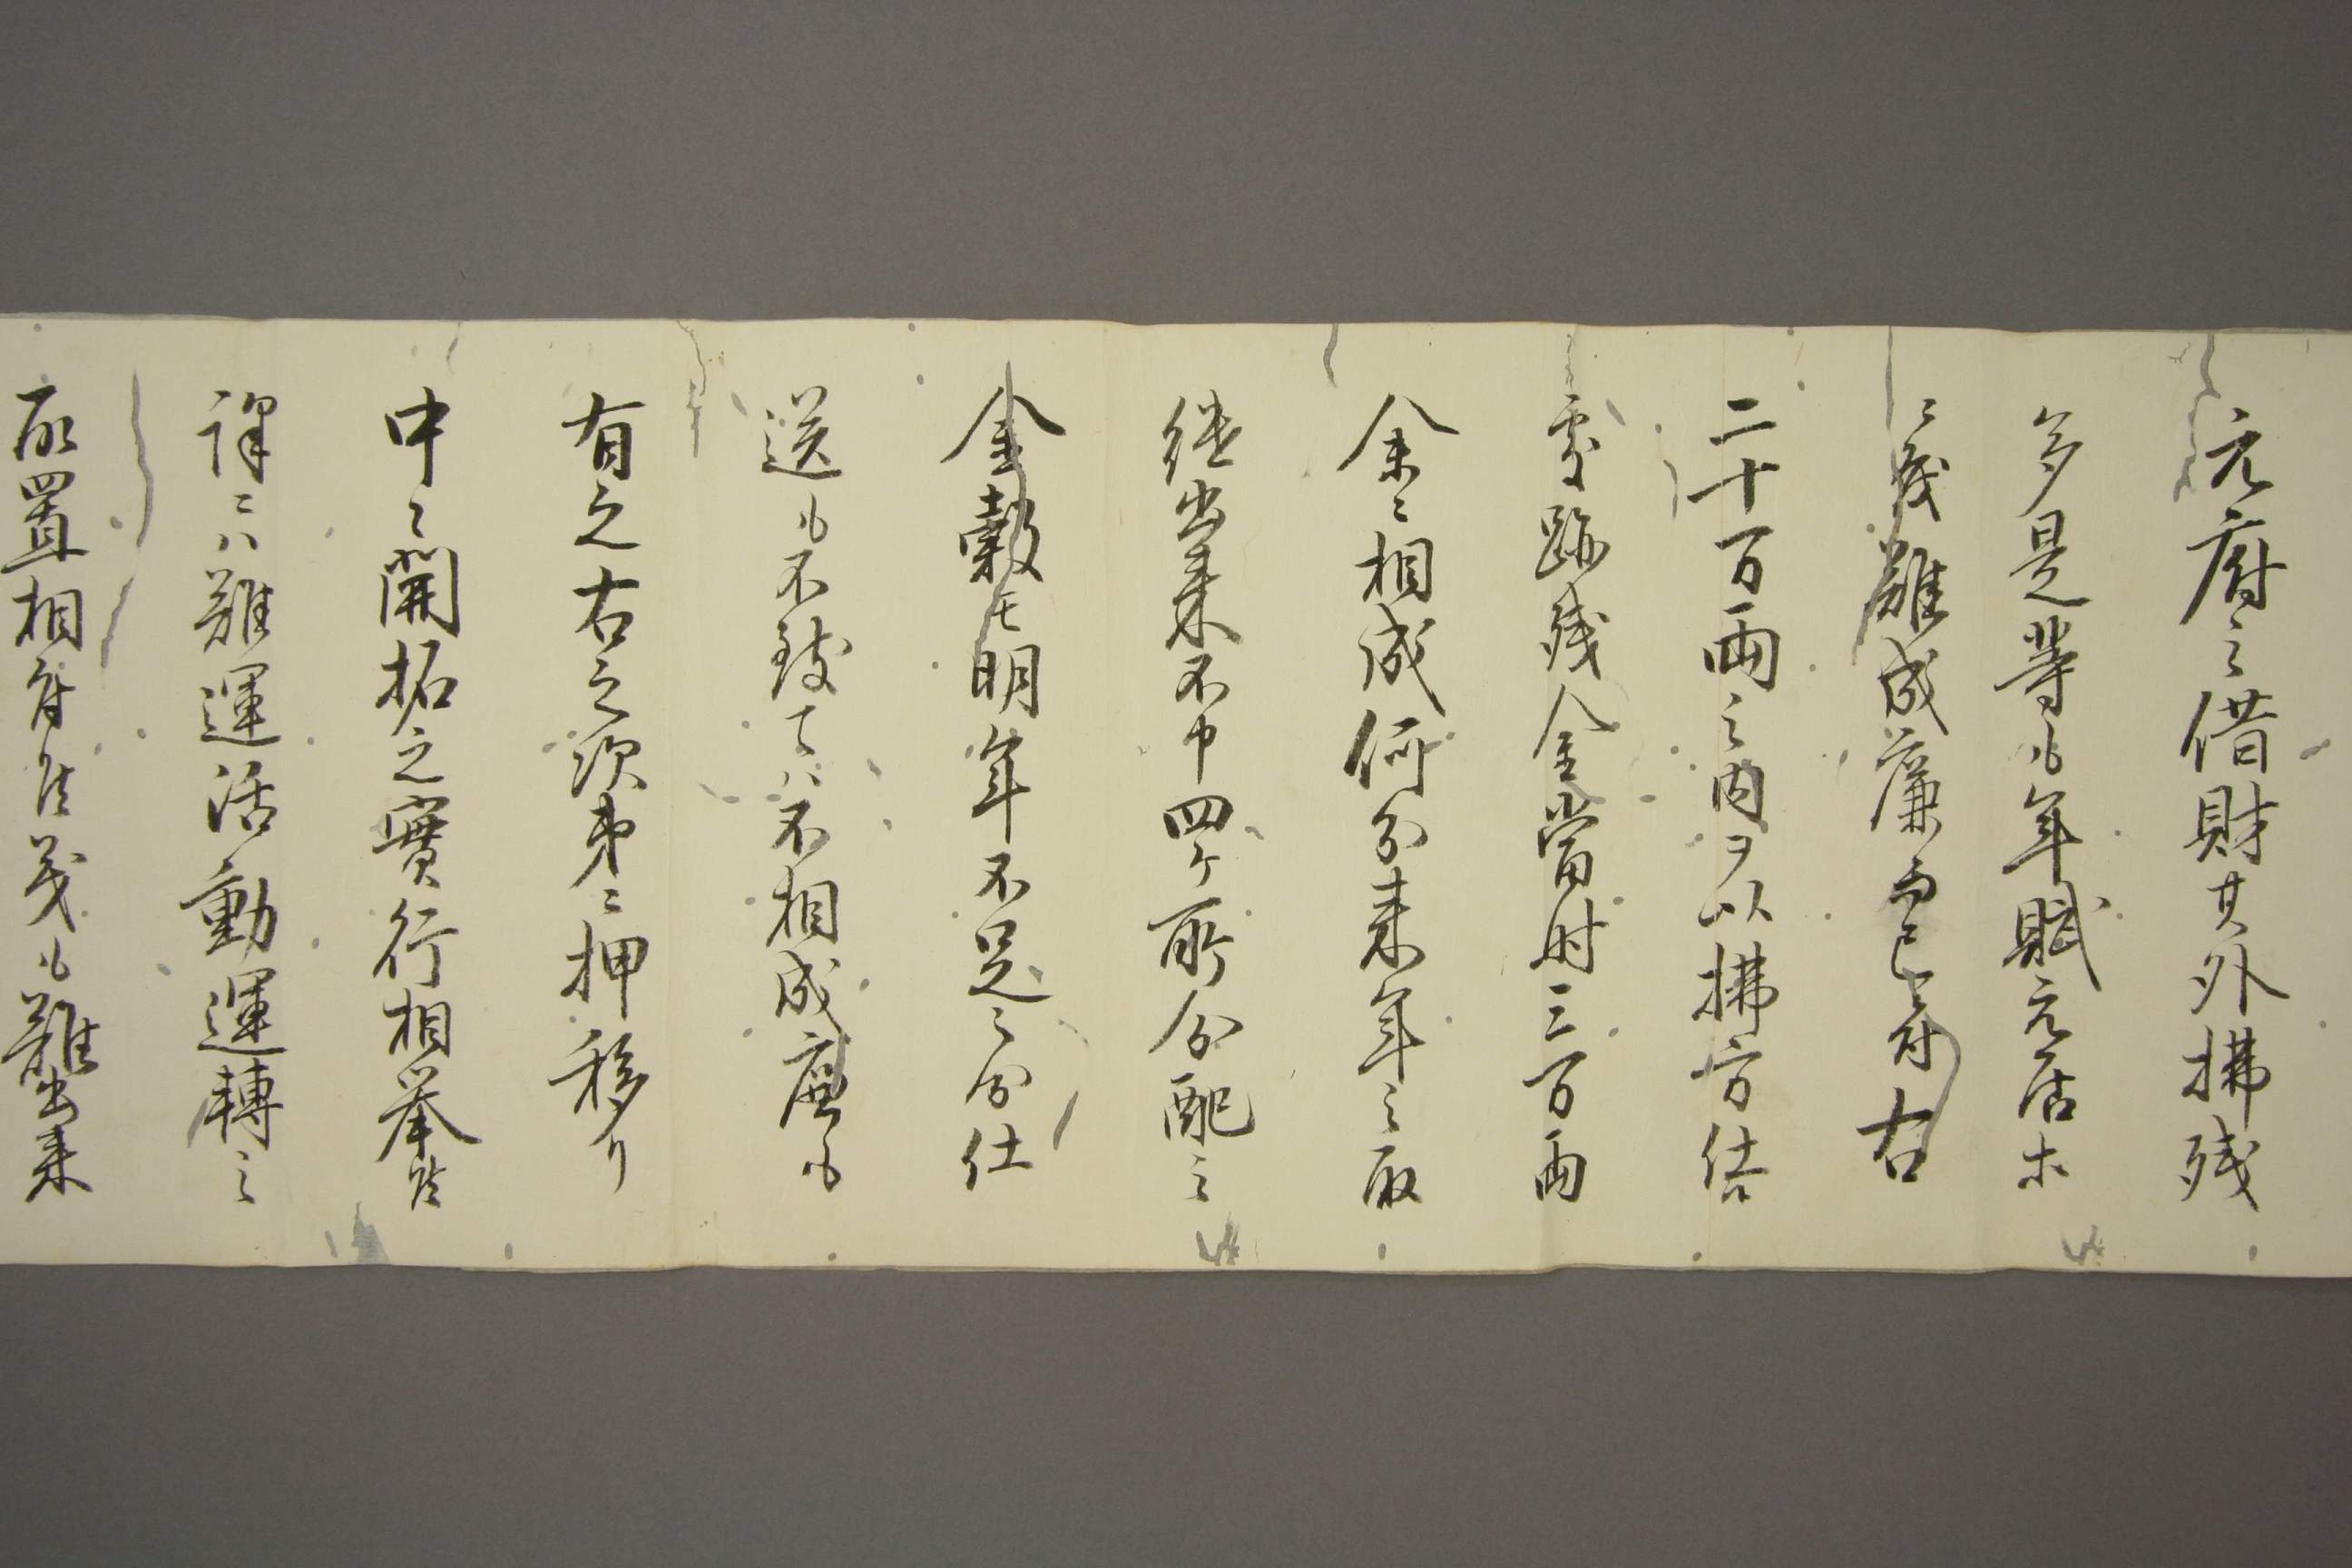 元府之借財其外拂残
多是等も年賦元居ホ
ニ茂難成廉而已ニ付右
二十万両之内ヲ以拂方仕
候處跡残金當時三万両
余ニ相成何分来年之取
続出来不申四ヶ所分配之
金穀モ明年不足之分仕
送も不致てハ不相成廉も
有之右之次第ニ押移り
中々開拓之實行相挙候
譯ニハ難運活動運轉之
取置相付候義も難出来